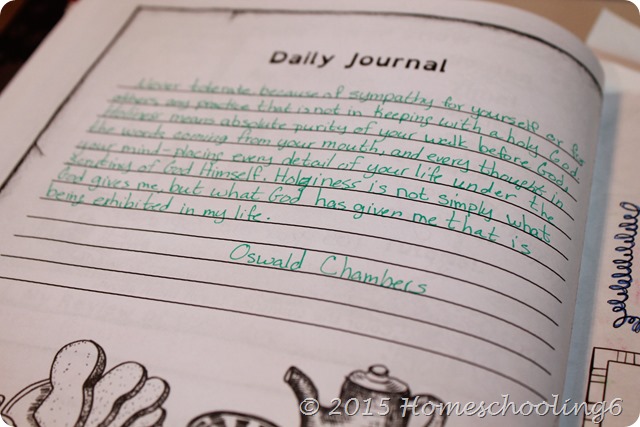 Daily Journal
Never tolerate because of sympathy for yourself or for
others any practice that is not in keeping with a holy God.
Holiness means absolute purity of your walk before God,
the words coming from your mouth, and every thought in
your mind - placing every detail of your life under the
scrutiny of God Himself. Holginess is not simply what
God gives me, but what God has given me that is
being exhibited in my life.
Oswald Chambers
© 2015 Homeschooling6